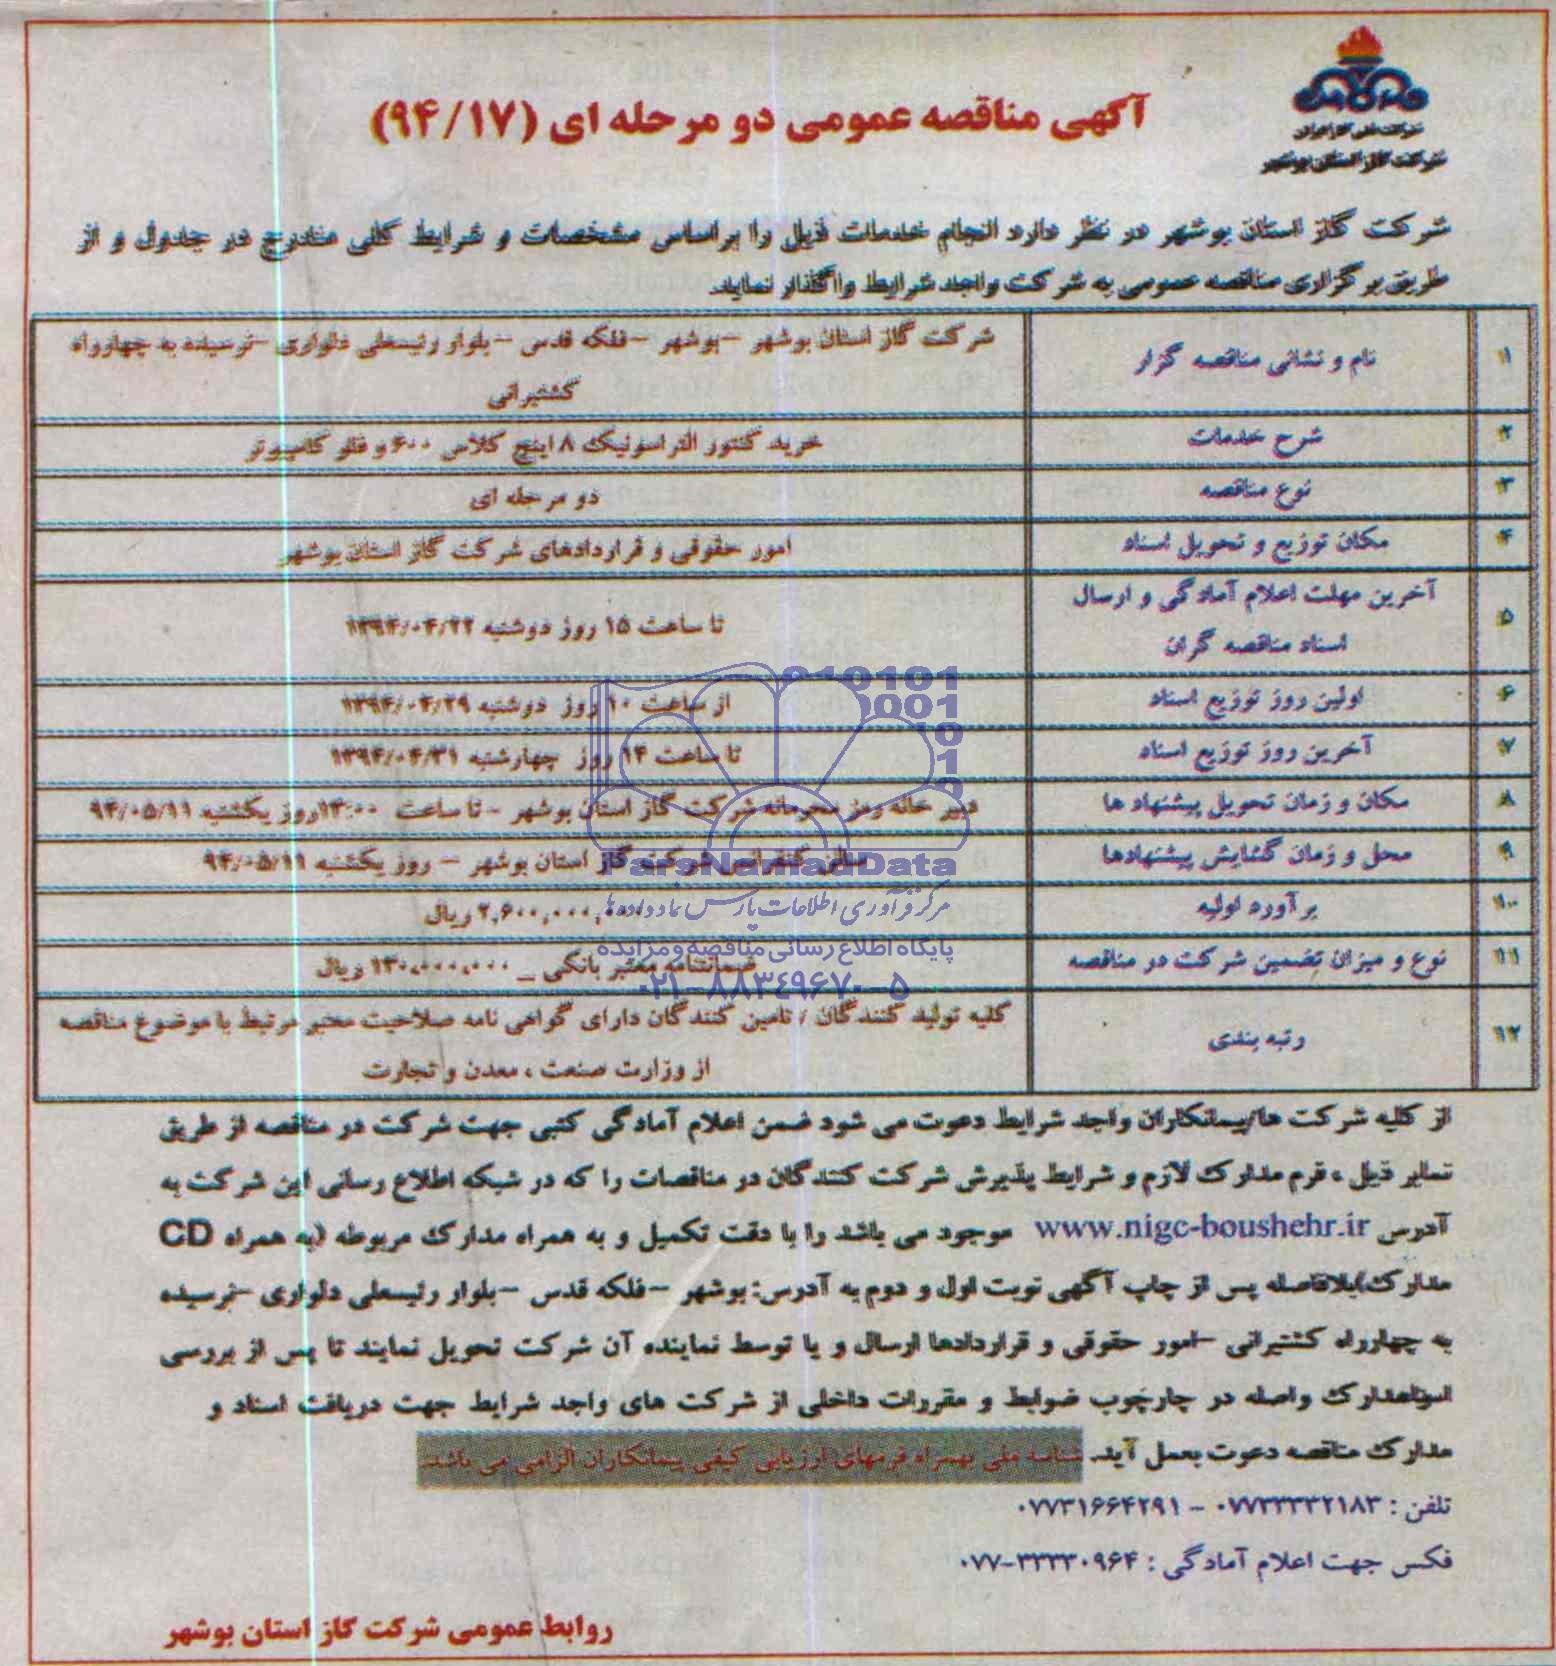 شرکت ملی گاز ایران
شرکت گاز استان بوشهر
آگهی مناقصه عمومی دو مرحله ای (۹۴/۱۷)
شرکت گاز استان بوشهر در نظر دارد انجام خدمات ذیل را براساس مشخصات و شرایط کلی مندرج در جدول و از
طریق برگزاری مناقصه عمومی به شرکت واجد شرایط واگذار نماید.
۱ نام و نشانی مناقصه گزار شرکت گاز استان بوشهر – بوشهر – فلکه قدس – بلوار رئیسعلی دلواری – نرسیده به چهارراه
کشتیرانی
۲ شرح خدمات خرید کنتور التراسونیک ۸ اینچ کلاس ۶۰۰ و فلو کامپیوتر
۳ نوع مناقصه دو مرحله ای
۴ مکان توزیع و تحویل اسناد امور حقوقی و قراردادهای شرکت گاز استان بوشهر
۵ آخرین مهلت اعلام آمادگی و ارسال
اسناد مناقصه گران تا ساعت ۱۵ روز دوشنبه ۱۳۹۴/۰۴/۲۲
۶ اولین روز توزیع اسناد از ساعت ۱۰ روز دوشنبه ۱۳۹۴/۰۴/۲۹
۷ آخرین روز توزیع اسناد تا ساعت ۱۴ روز چهارشنبه ۱۳۹۴/۰۴/۳۱
۸ مکان و زمان تحویل پیشنهاد ها دبیر خانه رمز محرمانه شرکت گاز استان بوشهر – تا ساعت ۱۴:۰۰ روز یکشنبه ۹۴/۰۵/۱۱
۹ محل و زمان گشایش پیشنهادها سالن کنفرانس شرکت گاز استان بوشهر – روز یکشنبه ۹۴/۰۵/۱۱
۱۰ برآورد اولیه ۲,۶۰۰,۰۰۰,۰۰۰ ریال
۱۱ نوع و میزان تضمین شرکت در مناقصه ضمانتنامه معتبر بانکی _ ۱۳۰,۰۰۰,۰۰۰ ریال
۱۲ رتبه بندی کلیه تولید کنندگان / تامین کنندگان دارای گواهی نامه صلاحیت معتبر مرتبط با موضوع مناقصه
از وزارت صنعت ، معدن و تجارت
010101
0001
10
10
ParsNamadData
مرکز فرآوری اطلاعات پارس نماد داده ها
پایگاه اطلاع رسانی مناقصه و مزایده
۰۲۱-۸۸۳۴۹۶۷۰-۵
از کلیه شرکت ها/پیمانکاران واجد شرایط دعوت می شود ضمن اعلام آمادگی کتبی جهت شرکت در مناقصه از طریق
نمابر ذیل ، فرم مدارک لازم و شرایط پذیرش شرکت کنندگان در مناقصات را که در شبکه اطلاع رسانی این شرکت به
آدرس www.nigc-boushehr.ir موجود می باشد را با دقت تکمیل و به همراه مدارک مربوطه (به همراه CD
مدارک)بلافاصله پس از چاپ آگهی نوبت اول و دوم به آدرس: بوشهر – فلکه قدس – بلوار رئیسعلی دلواری – نرسیده
به چهارراه کشتیرانی – امور حقوقی و قراردادها ارسال و یا توسط نماینده آن شرکت تحویل نمایند تا پس از بررسی
اسناد مدارک واصله در چارچوب ضوابط و مقررات داخلی از شرکت های واجد شرایط جهت دریافت اسناد و
مدارک مناقصه دعوت بعمل آید. شناسه ملی بهمراه فرمهای ارزیابی کیفی پیمانکاران الزامی می باشد.
تلفن : ۰۷۷۳۳۳۳۲۱۸۳ – ۰۷۷۳۱۶۶۴۲۹۱
فکس جهت اعلام آمادگی : ۰۷۷-۳۳۳۳۰۹۶۴
روابط عمومی شرکت گاز استان بوشهر